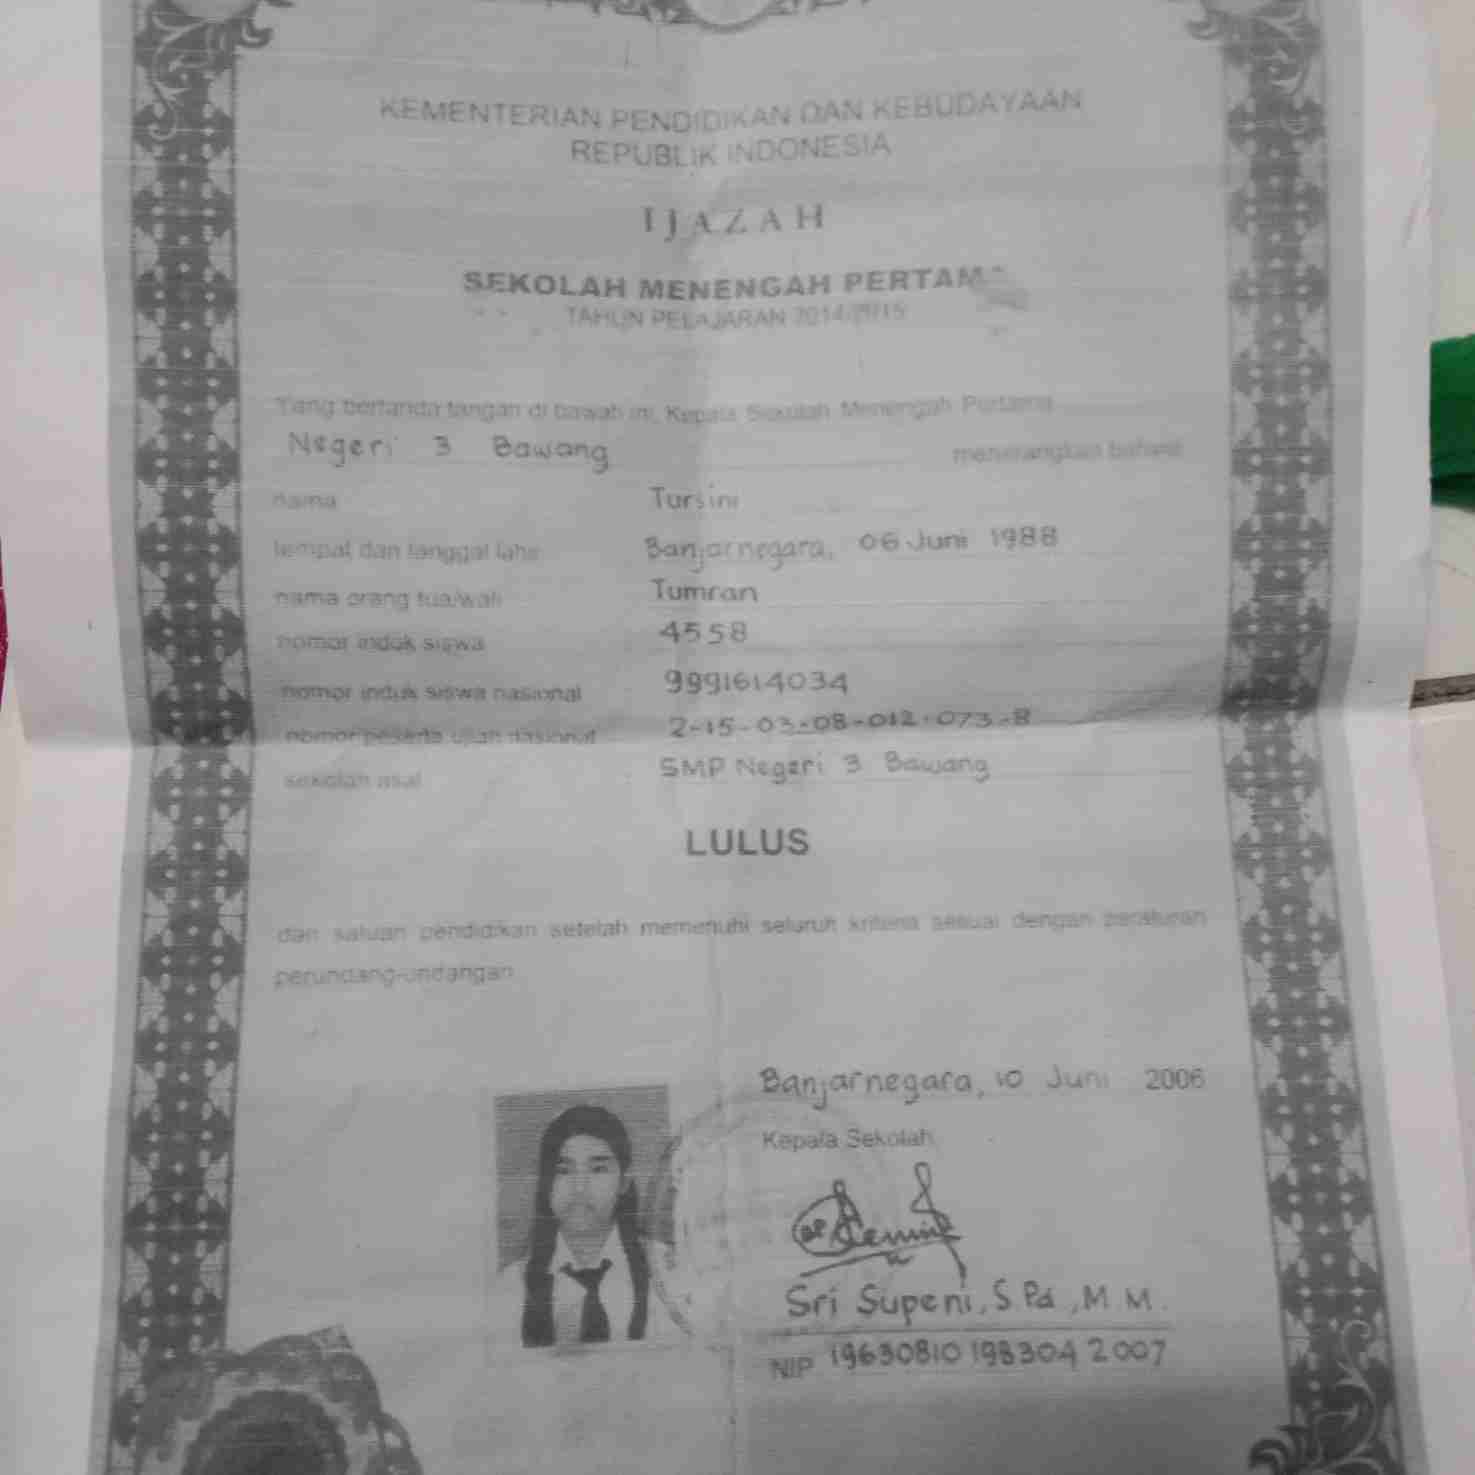 KEMENTERIAN PENDIDIKAN DAN KEBUDAYAAN
REPUBLIK INDONESIA
IJAZAH
SEKOLAH MENENGAH PERTAMA
TAHUN PELAJARAN 2014/2015
Yang bertanda tangan di bawah ini, Kepala Sekolah Menengah Pertama
Negeri 3 Bawang menerangkan bahwa
nama Tursini
tempat dan tanggal lahir Banjarnegara, 06 Juni 1988
nama orang tua/wali Tumran
nomor induk siswa 4558
nomor induk siswa nasional 9991614034
nomor peserta ujian nasional 2-15-03-08-012-073-8
sekolah asal SMP Negeri 3 Bawang
LULUS
dari satuan pendidikan setelah memenuhi seluruh kriteria sesuai dengan peraturan
perundang-undangan
Banjarnegara, 10 Juni 2006
Kepala Sekolah
Sri Supeni, S.Pd, M.M.
NIP 19630810 198304 2 007